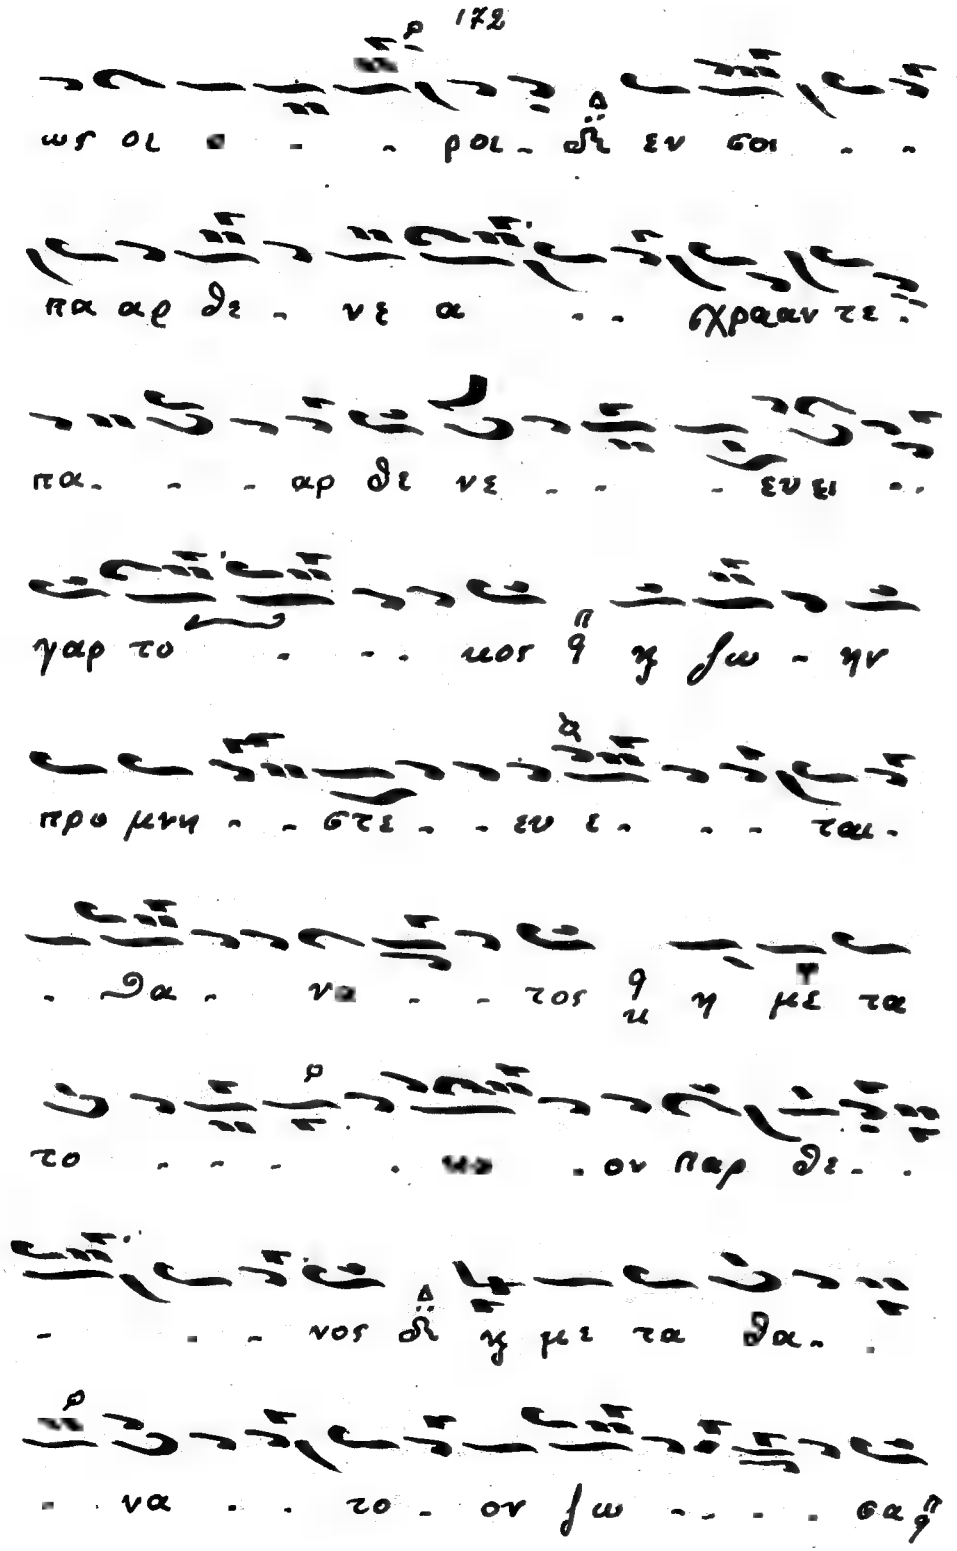 172
ως οι ο - - ροι - δι εν σοι - -
πα αρ θε - νε α - - χρααν τε -
πα - - - αρ θε νε - - - ευ ει - -
γαρ το - - - κος ϟ ϗ ζω - ην
προ μνη - - στε - - ευ ε - - - ται -
- θα - να - - τος ϟ η με τα
το - - - - κο - ον παρ θε - -
- - - νος δι ϗ με τα θα - -
- - να - - το - ον ζω - - - - σα ϟ